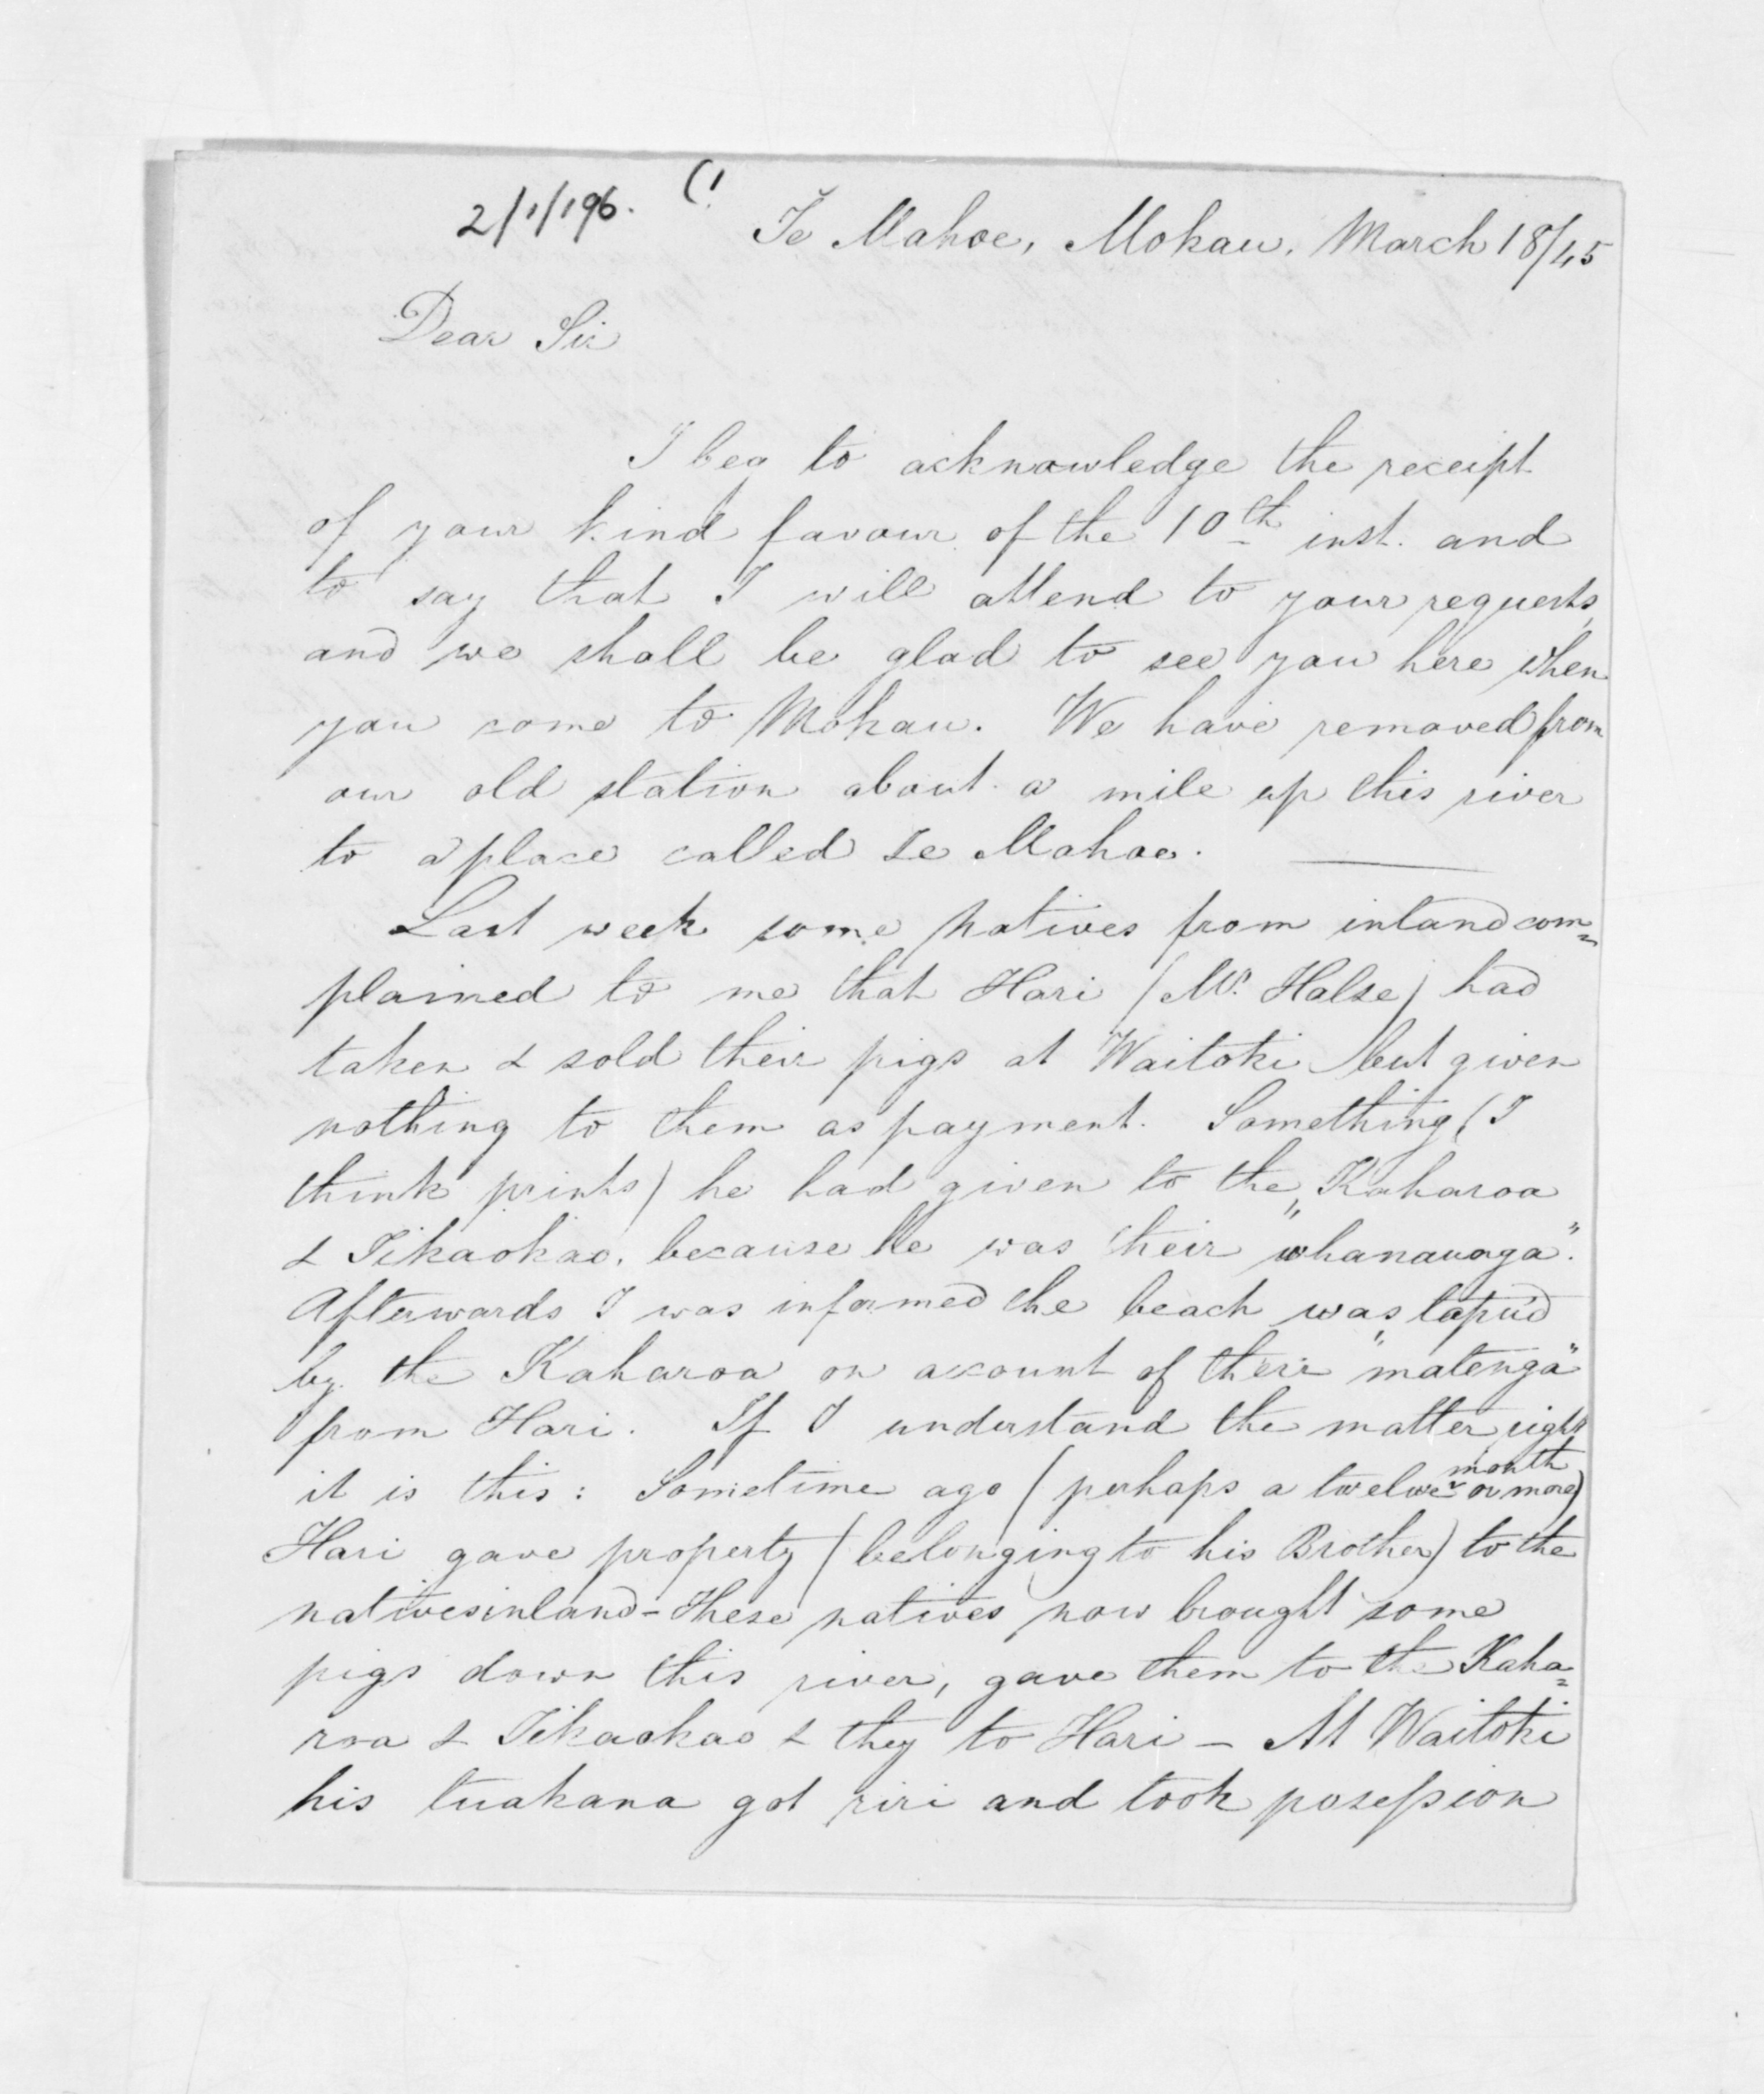 2/1/196. (1
Te Mahoe, Mokau. March 18/45
Dear Sir
I beg to acknowledge the receipt
of your kind favour of the 10th inst. and
to say that I will attend to your requests,
and we shall be glad to see you here when
you come to Mokau. We have removed from
our old station about a mile up this river
to a place called Te Mahoe.
Last week some natives from inland com=
plained to me that Hari (Mr. Halse) had
taken & sold their pigs at Waitoki but given
nothing to them as payment. Something (I
think prints) he had given to the Kaharoa
& Tikaokao, because he was their "whanaunga".
Afterwards I was informed the beach was tapu'd
by the Kaharoa on account of their "matenga"
from Hari. If I understand the matter right
it is this: Sometime ago (perhaps a twelvemonth or more)
Hari gave property (belonging to his Brother) to the
natives inland - These natives now brought some
pigs down this river, gave them to the Kaha=
roa & Tikaokao & they to Hari - At Waitoki
his tuakana got riri and took posession